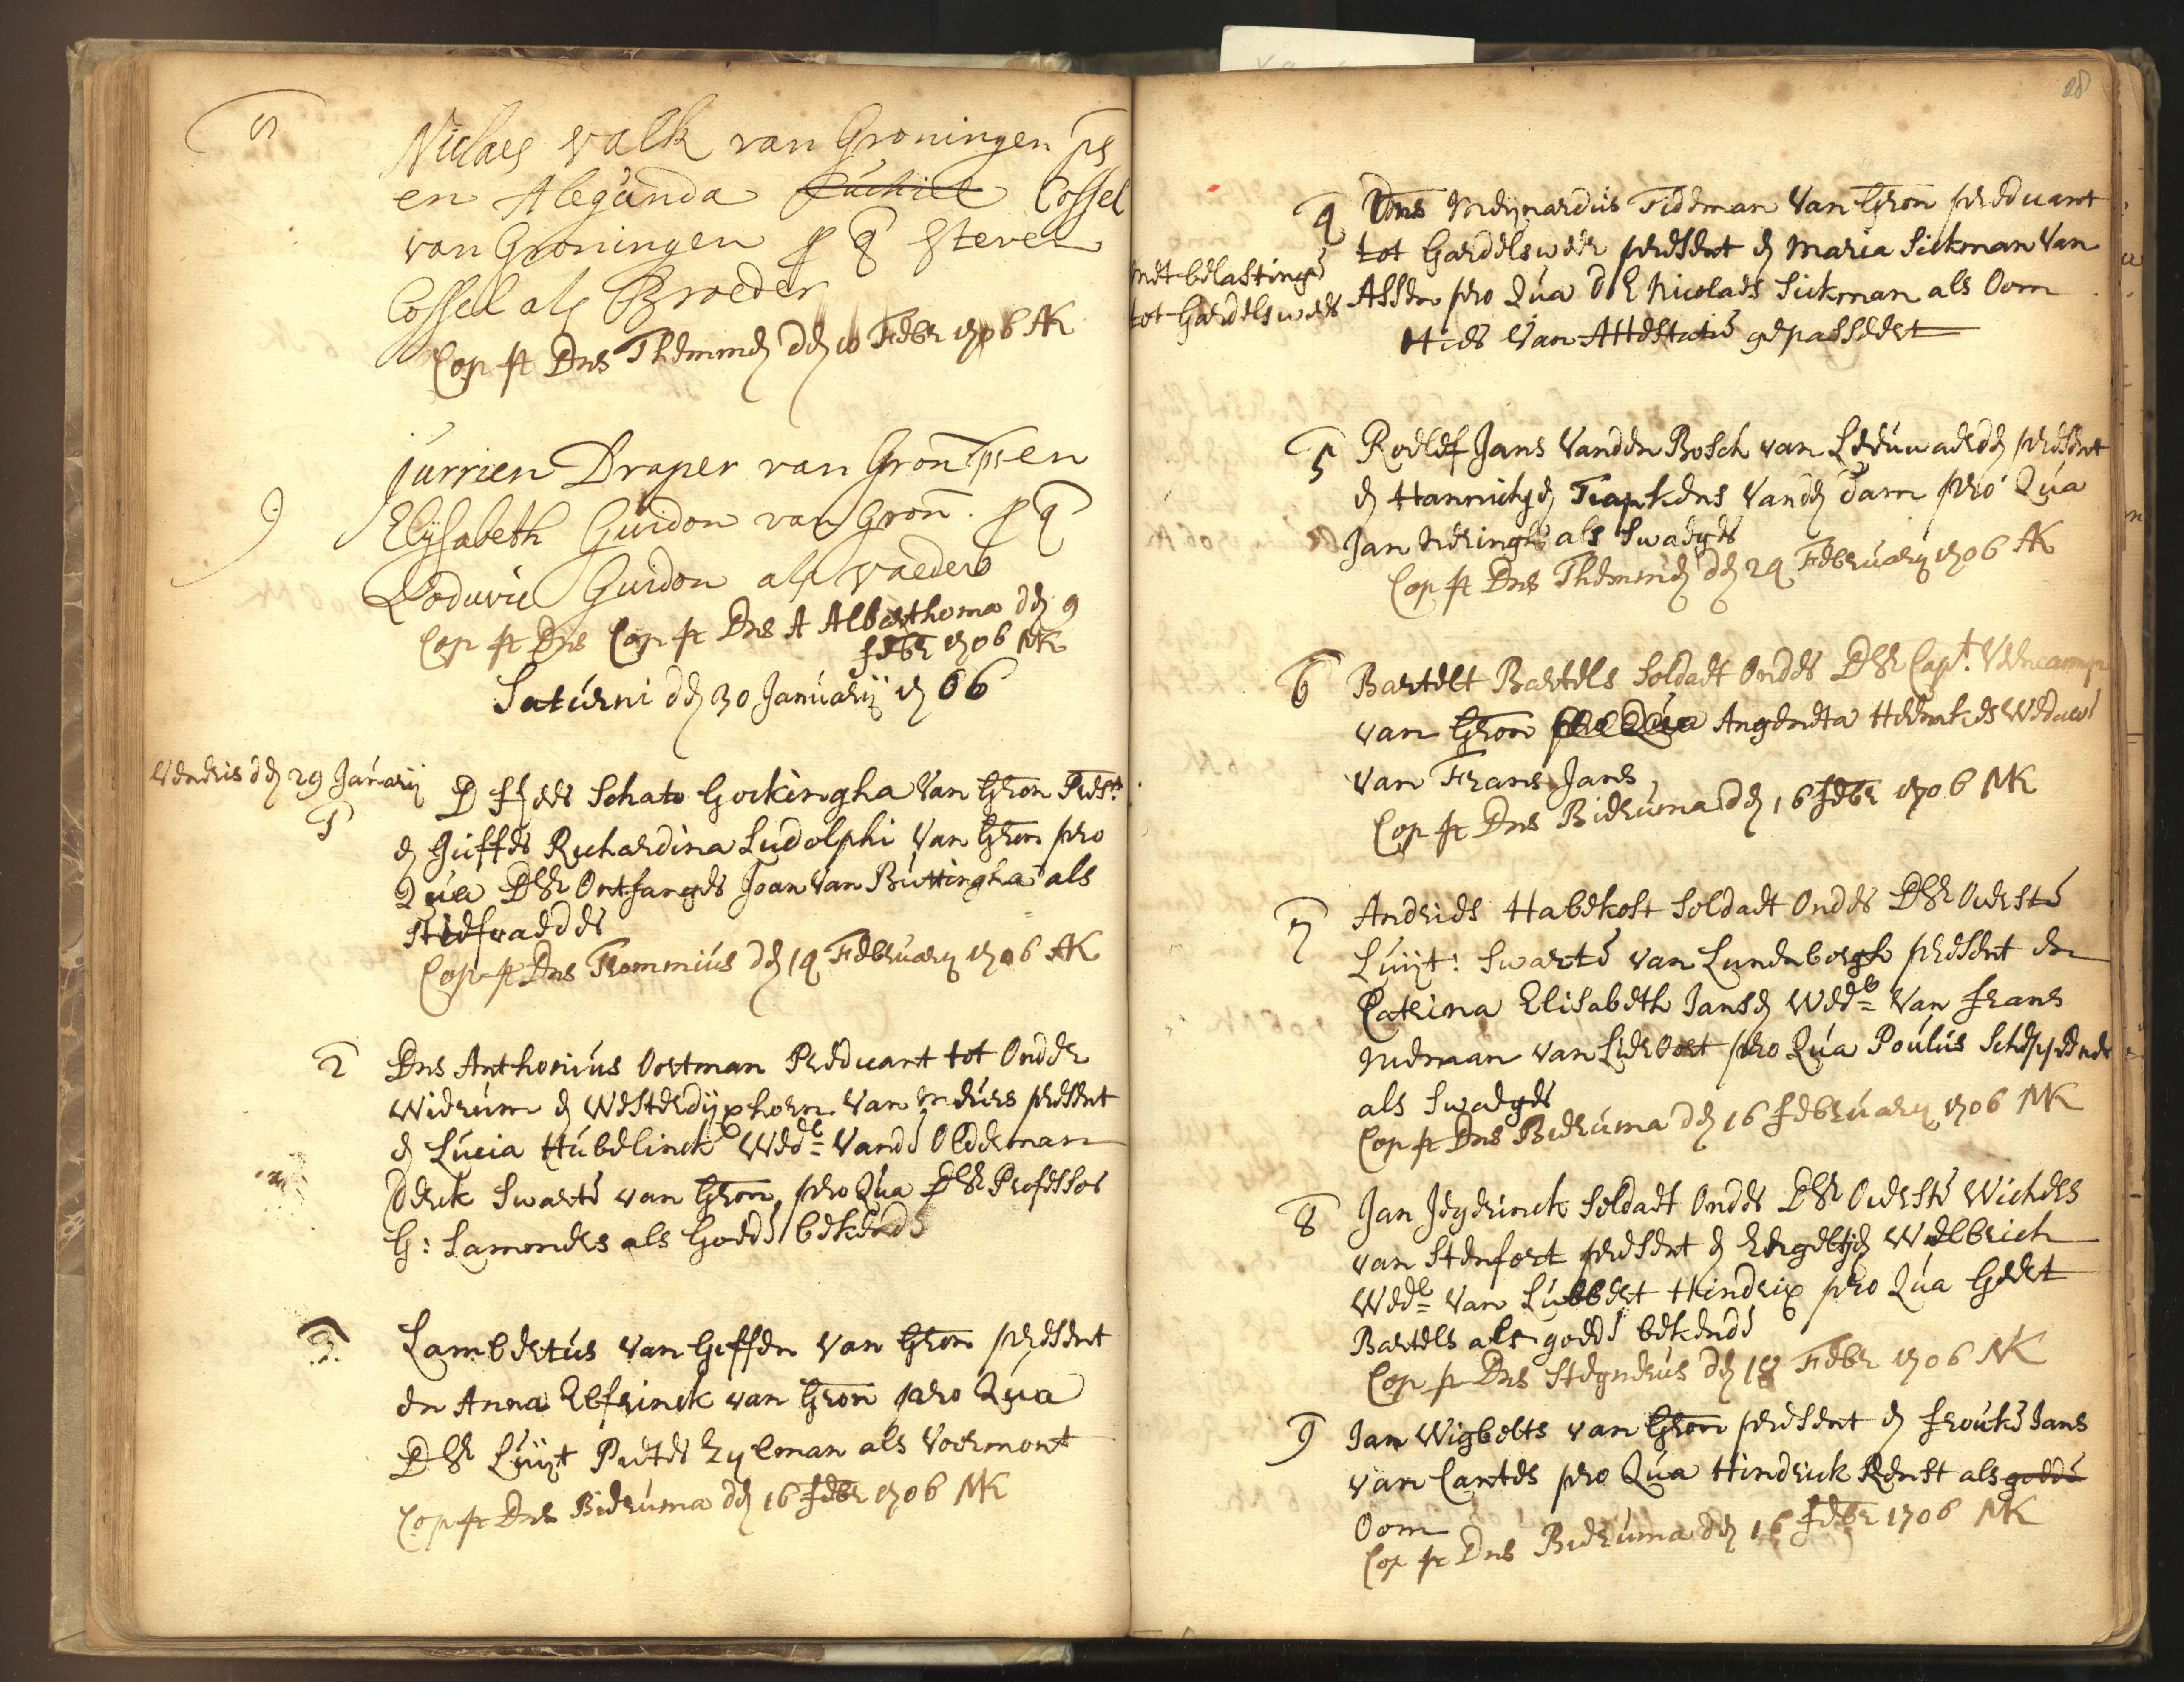 Niclaes Valk van Groningen ps
en Alegunda Cossel
van Groningen p q Steven
Cossel als Broeder
Cop pr Dns Themmen den 10 Febr 1706 AK
9
Jurrien Draper van Gron ps en
Elijsabeth Guidon van Gron. p q
Loduvic Guidon als vaeder
Cop pr Dns Cop pr Dns A Alberthoma den 9
Febr 1706 NK
Saturni den 30 Januarij 1706
Veneris den 29 Januarij
1
D Hr Schato Gockingha van Gron Prest
en Juffer Richardina Ludolphi van Gron pro
Qua D Hr Ontfanger Joan van Buttingha als
Stiefvaeder
Cop pr Dns Trommius den 14 February 1706 AK
2
Dns Anthonius Oortman Predicant tot Onder
Wierum en Westerdijxhorn van Meurs present
en Lucia Hubelinck Wede vande Olderman
Derck Swarte van Gron, pro Qua D Hr Professor
G: Lamondes als Goede bekende
3
Lambertus van Giffen van Gron present
en Anna Elfrinck van Gron pro Qua
D Hr Luijt Pieter Zylman als Voormont
Cop pr Dns Bieruma den 16 Febr 1706 NK
28
4
Dns Meijnardus Tideman van Gron predicant
tot Garrelsweer present en Maria Sickman van
met belastinge
tot Garrelsweer
Assen pro Qua d E Nicolaes Sickman als Oom
Hier van Attestatie gepasseert
5
Roelef Jans vanden Bosch van Leeuwaerden present
en Hannichjen Tiapkens vanden Dam pro Qua
Jan Meringh als Swager
Cop pr Dns Themmen den 24 February 1706 AK
6
Bartelt Bartels Soldaet Onder D Hr Capt. Veencamp
van Gron pro Qua Angeneta Heerkes Weduwe
van Frans Jans
Cop pr Dns Bieruma den 16 Febr 1706 NK
7
Andries Haberkost Soldaet Onder D Hr Overste
Luijt: Swarte van Lunenborgh present en
Catrina Elisabeth Jansen Wede van Frans
Nieman van Lieroort pro Qua Poulus
als Swager
Cop pr Dns Bieruma den 16 February 1706 NK
8
Jan Jegerinck Soldaet Onder D Hr Overste Wichers
van Stenfort present en Engeltjen Welbrich
Wede van Lubbert Hindrix pro Qua Geert
Bartels als goede bekende
Cop pr Dns Steynerus den 18 Febr 1706 NK
9
Jan Wigbolts van Gron present en Frouke Jans
van Cantes pro Qua Hindrick Renst als goede
Oom
Cop pr Dns Bieruma den 16 Febr 1706 NK